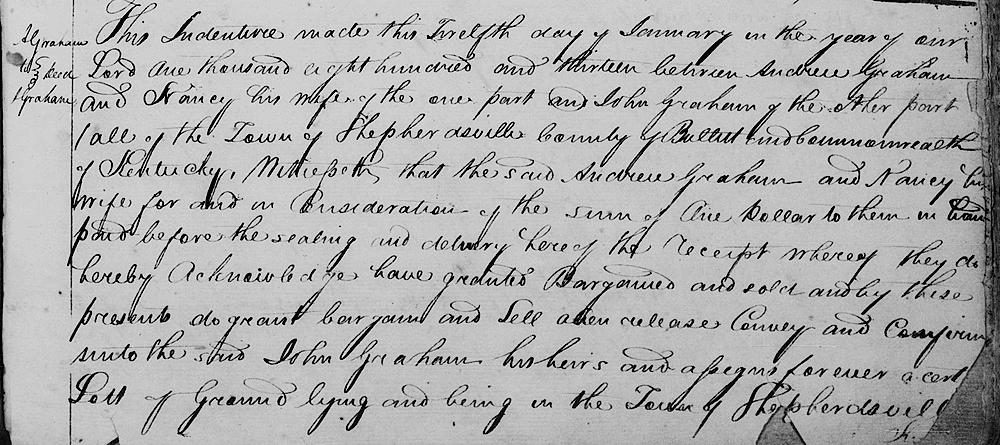 A Graham
to } Deed
J Graham
This Indenture made this Twelfth day of January in the year of our
Lord One thousand eight hundred and thirteen between Andrew Graham
and Nancy his wife of the one part and John Graham of the other part
(all of the Town of Shepherdsville County of Bullitt and Commonwealth
of Kentucky, Witnesseth, that the said Andrew Graham and Nancy his
wife for and in Consideration of the sum of One Dollar to them in hand
paid before the sealing and delivery hereof the receipt whereof they do
hereby Acknowledge have granted Bargained and sold and by these
presents do grant bargain and Sell alien release Convey and Confirm
unto the said John Graham his heirs and assigns forever a cert
Lott of Ground lying and being in the Town of Shepherdsvill